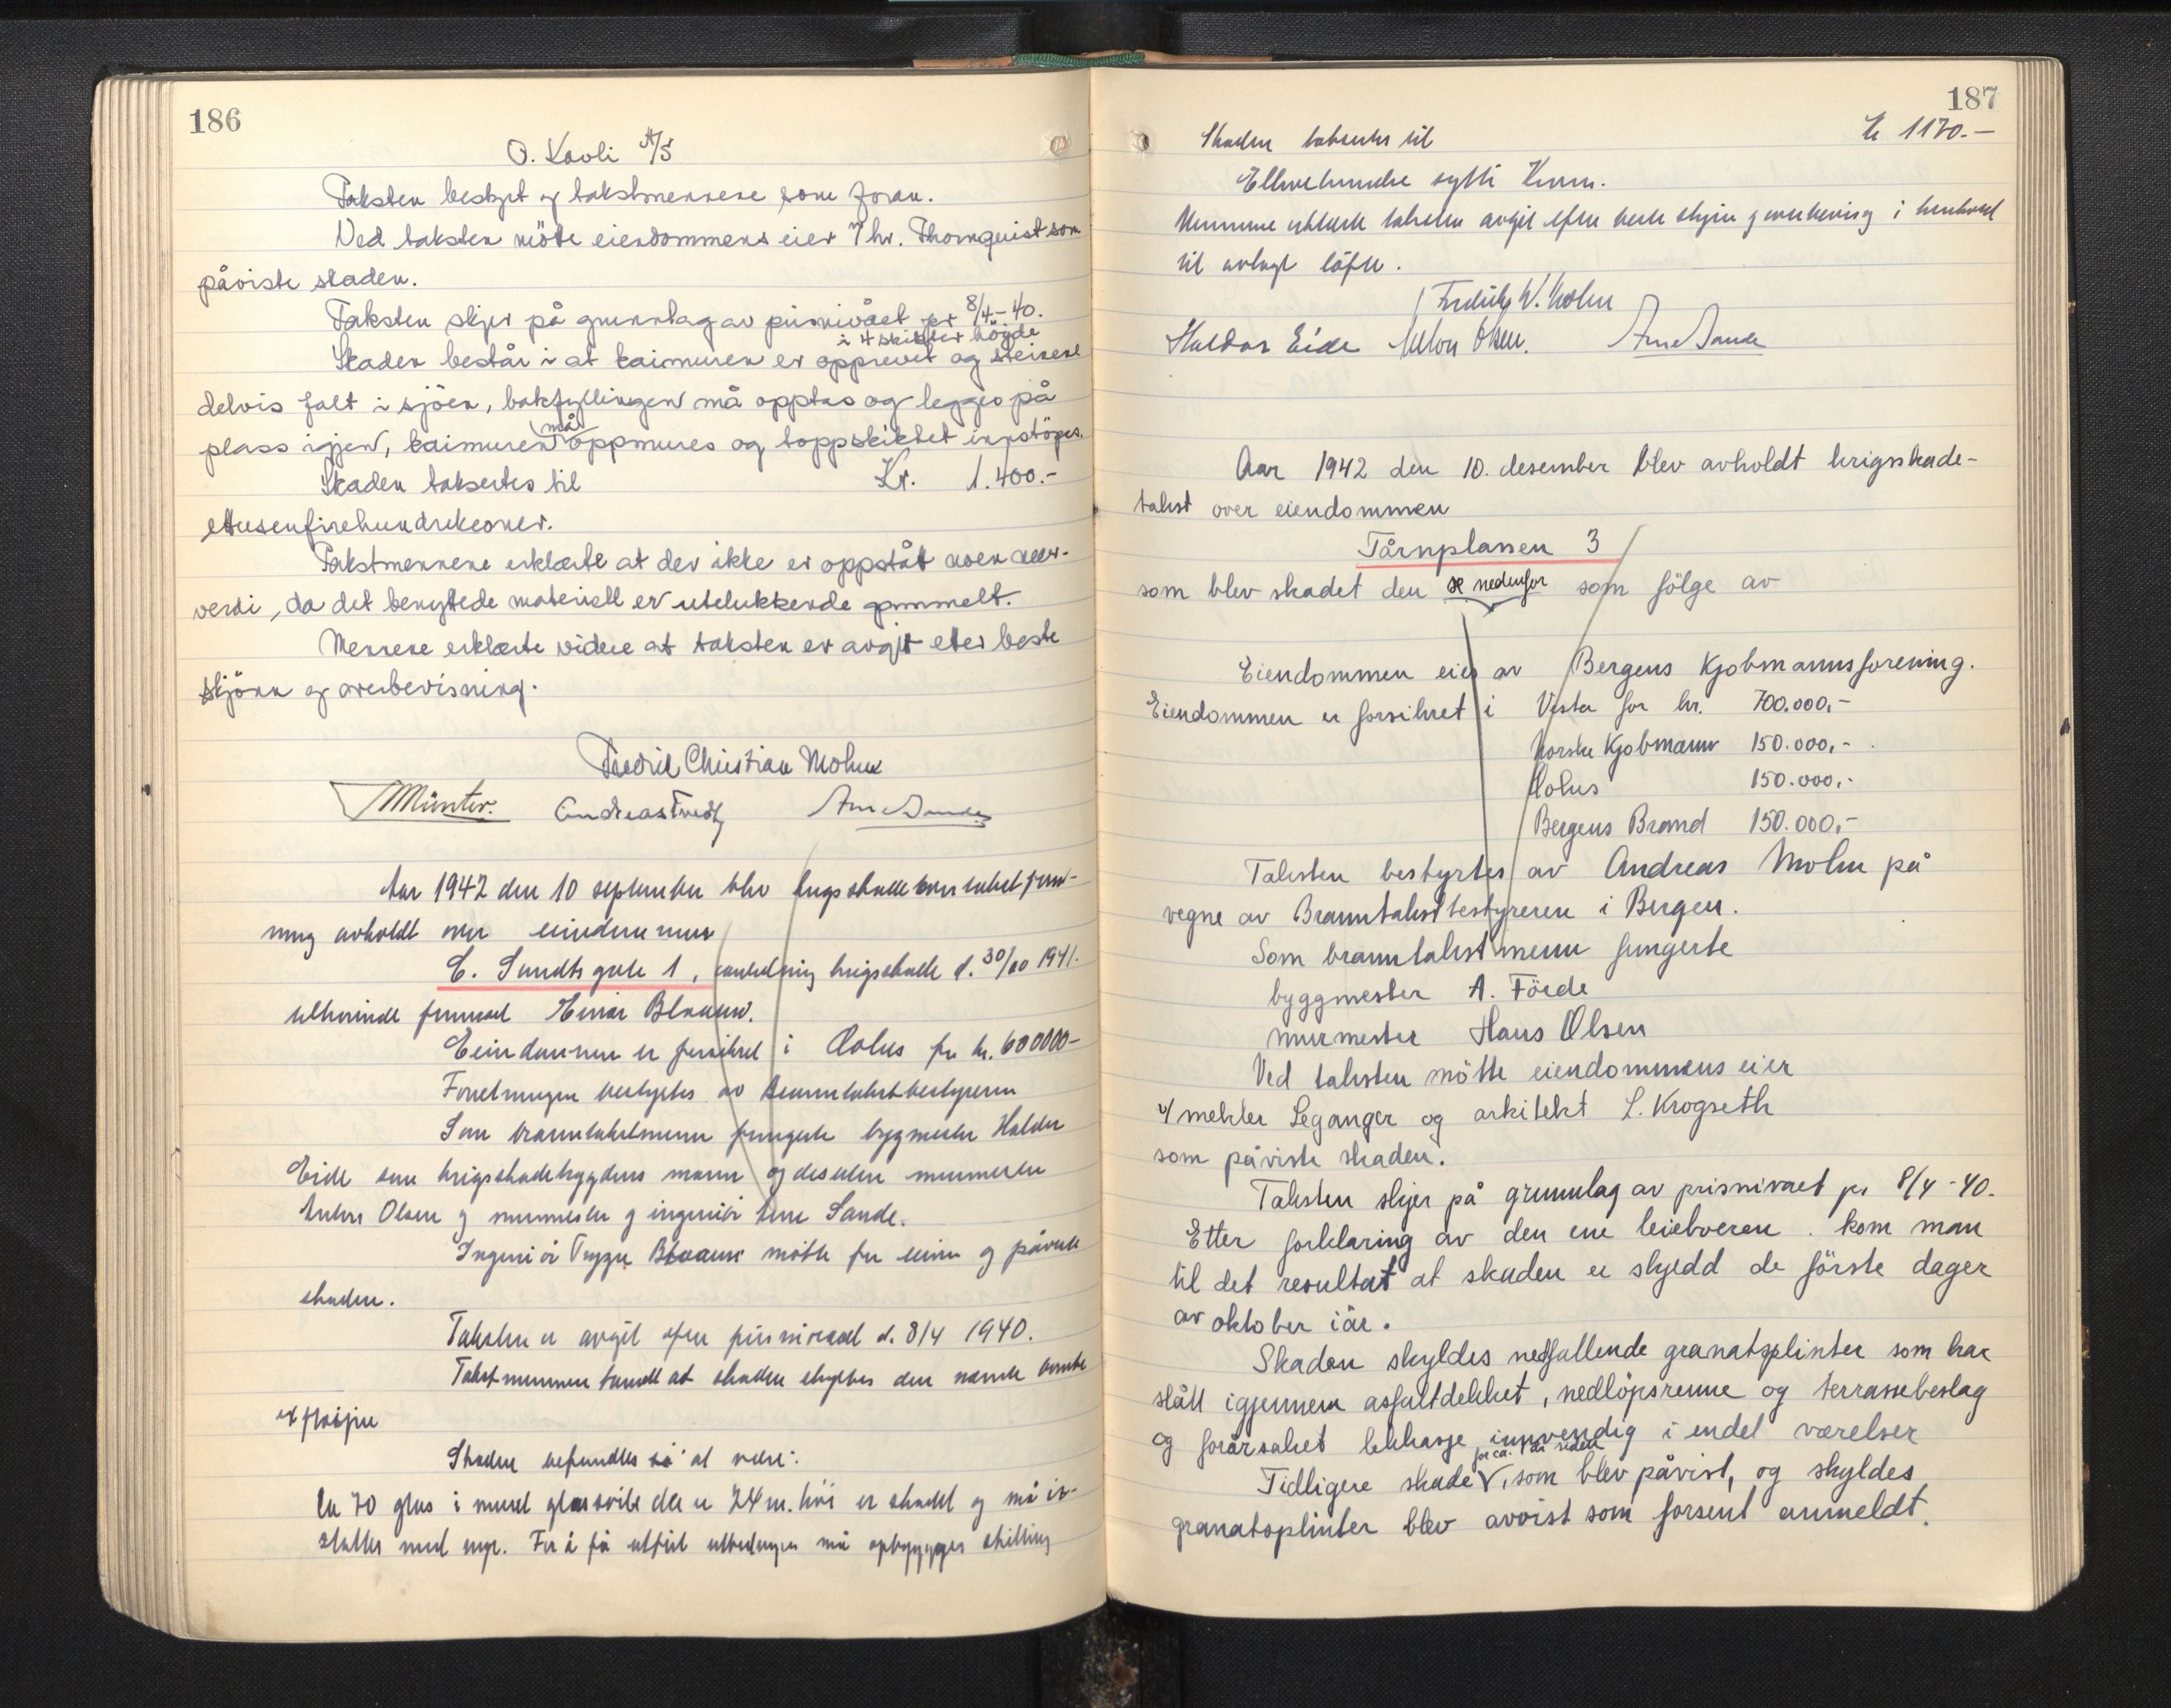 186
O. Kavli A/S
Taksten bestyrt og takstmennene som foran.
Ved taksten møte eiendommens eier v/ hr. Thornquist som
påviste skaden.
Taksten skjer på grunnlag av prisnivået pr 8/4-40.
i 4 skikter høyde
Skaden består i at kaimuren er opprevet og steinene
delvis falt i sjöen, bakfyllingen må opptas og legges på
må
plass igjen, kaimuren oppmures og toppskiktet innstöpes.
Skaden taksertes til Kr. 1.400.-
ettusenfirehundrekroner.
Takstmennene erklærte at der ikke er oppståt noen mer-
verdi, da det benyttede materiell er utelukkende gammelt.
Mennene erklærte videre at taksten er avgit etter beste
skjönn og overbevisning.
Fredrik Christian Mohn
Münter. Andreas Tvedt Arne Sande
Aar 1942 den 10 september blev krigsskade
ning avholdt over eiendommen
C. Sundts gate 1, anledning krigsskade d. 30/10 1941.
tilhörende Einar Blaauw.
Eiendommen er forsikret i Æolus for kr. 600000-
Forretningen bestyrtes av Branntakstbestyreren
Som branntakstmenn fungerte bygmester Haldor
Eide som krigsskadetrygdens mann og desuten murmester
Anton Olsen og murmester og ingeniör Arne Sande.
Ingeniör Trygve Blaauw mötte for eieren og påviste
skaden.
Taksten er avgit efter prisnivået d. 8/4 1940.
Takstmennene fandt at skaden skyltes den nævnte bombe
Skaden befandtes så at være:
Ca 70 glas i glas der er 24 m. höi er skadet og må er-
stattes med nye. For å få utfört utbedringen må opbygges stilling
187
Skaden taksertes til Kr 1170.-
Ellevehundre sytti Kroner.
Mennene erklærte taksten avgit efter beste skjön og overbevisning i henhold
til avlagt löfte.
Fredrik W. Mohn
Haldor Eide Anton Olsen. Arne Sande
Aar 1942 den 10. desember blev avholdt krigsskade-
takst over eiendommen
Tårnplassen 3
som blev skadet den se nedenfor som fölge av
Eiendommen eies av Bergens Kjøbmannsforening.
Eiendommen er forsikret i Vesta for kr. 700.000,-
Norske Kjøbmann 150.000,-
Æolus 150.000,-
Bergens Brand 150.000,-
Taksten bestyrtes av Andreas Mohn på
vegne av Branntakstbestyreren i Bergen.
Som branntakstmenn fungerte
byggmester A. Förde
murmester Hans Olsen
Ved taksten mötte eiendommens eier
v/ mekler Leganger og arkitekt L. Krogseth
som påviste skaden.
Taksten skjer på grunnlag av prisnivået pr 8/4-40.
Etter forklaring av den ene leieboeren . kom man
til det resultat at skaden er skjedd de förste dager
av oktober iår.
Skaden skyldes nedfallende granatsplinter som har
slått igjennem asfaltdekket, nedlöpsrenne og terrassebeslag
og forårsaket lekkasje innvendig i endel værelser
for ca. 1 år siden
Tidligere skade V, som blev påvist, og skyldes
granatsplinter blev avvist som forsent anmeldt.